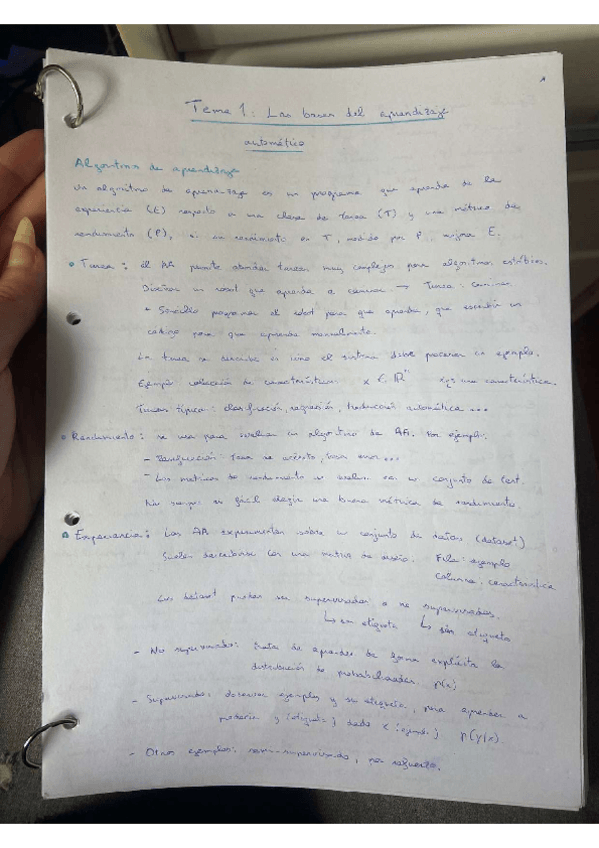 Tema 1: Las bases del aprendizaje
automático
Algoritmos de aprendizaje
Un algoritmo de aprendizaje es un programa que aprende de la
experiencia (E) respecto a una clase de tarea (T) y una métrica de
rendimiento (P), si su rendimiento en T, medido por P, mejora E.
Tarea: El AA permite abordar tareas muy complejas para algoritmos estáticos.
Diseñar un robot que aprenda a caminar → Tarea: caminar
Sencillo programar el robot para que aprenda, que escribir un
código para que aprenda manualmente.
La tarea se describe en cómo el sistema debe procesar un ejemplo.
Ejemplo colección de características x ∈ ℝⁿ una característica.
Tareas típicas: clasificación, regresión, traducción automática ...
Rendimiento: se usa para evaluar un algoritmo de AA. Por ejemplo:
- Tasa de acierto, tasa error...
- Las métricas de rendimiento se evalúan con un conjunto de test.
No siempre es fácil elegir una buena métrica de rendimiento.
Experiencia: Los AA experimentan sobre un conjunto de datos (dataset)
Suelen describirse con una matriz de diseño. Fila: ejemplo
Columna: característica
Los dataset pueden ser supervisados o no supervisados.
↳ con etiqueta ↳ sin etiqueta
- No supervisado: trata de aprender de forma explícita la
distribución de probabilidades p(x)
- Supervisado: observar ejemplos y su etiqueta, para aprender a
predecir y (etiqueta) dado x (ejemplo) p(y|x).
- Otros ejemplos: semi-supervisado, por refuerzo.